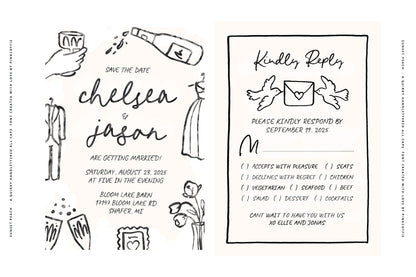 SAVE THE DATE
chelsea
&
jason
ARE GETTING MARRIED!
SATURDAY, AUGUST 23, 2025
AT FIVE IN THE EVENING
BLOOM LAKE BARN
SHAFER, MI
Kindly Reply
PLEASE KINDLY RESPOND BY
SEPTEMBER 19, 2025
M
( ) ACCEPTS WITH PLEASURE ( ) SEATS
( ) DECLINES WITH REGRET ( ) CHICKEN
( ) VEGETARIAN ( ) SEAFOOD ( ) BEEF
( ) SALAD ( ) DESSERT ( ) COCKTAILS
CANT WAIT TO HAVE YOU WITH US
XO ELLIE AND JONAS